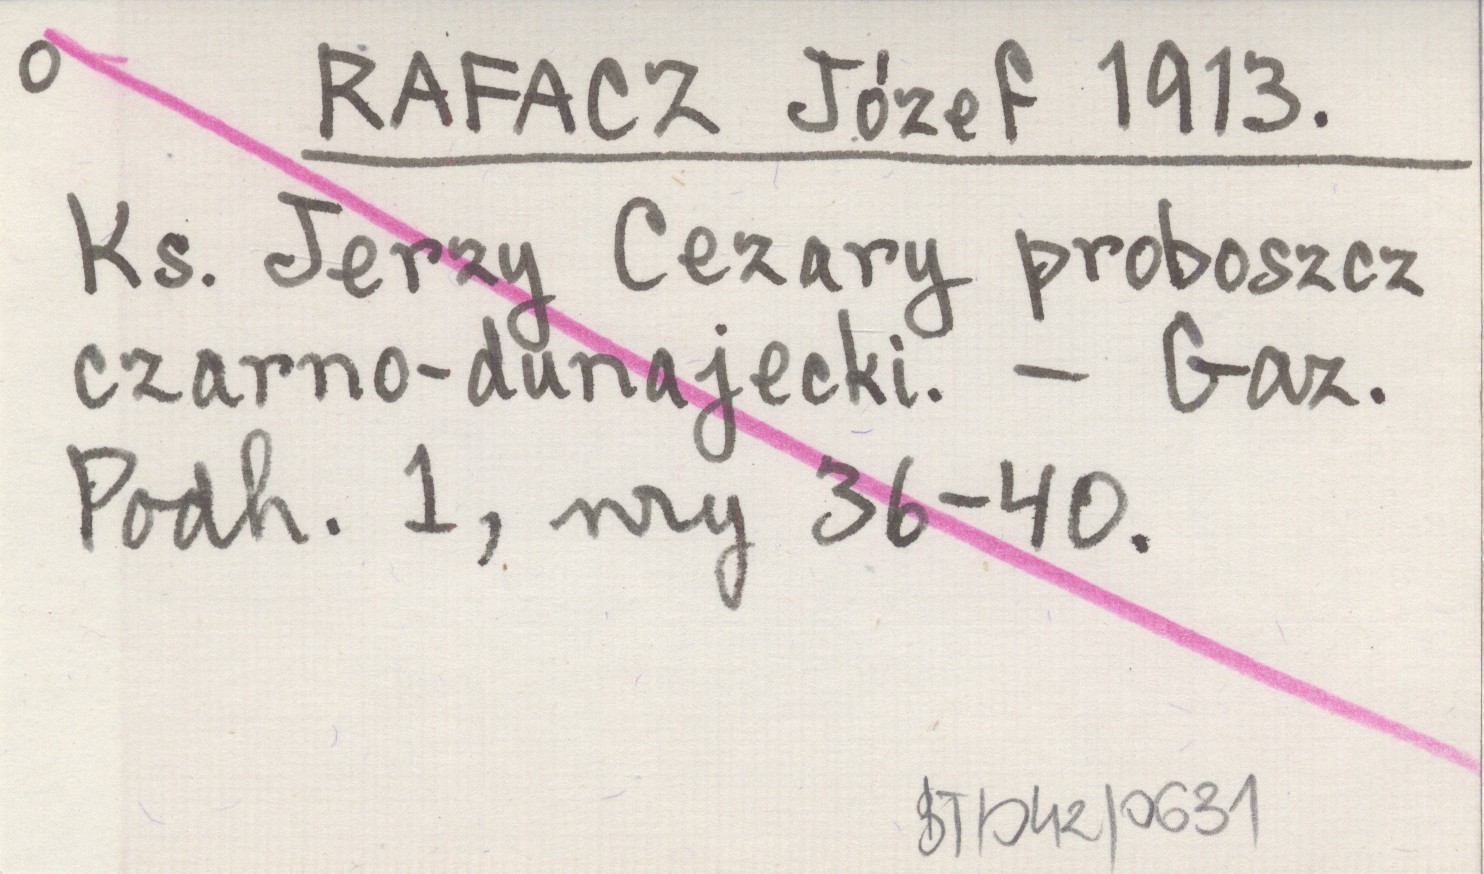 O
RAFACZ Józef 1913.
Ks. Jerzy Cezary proboszcz
czarno-dunajecki. — Gaz.
Podh. 1, nry 36-40.